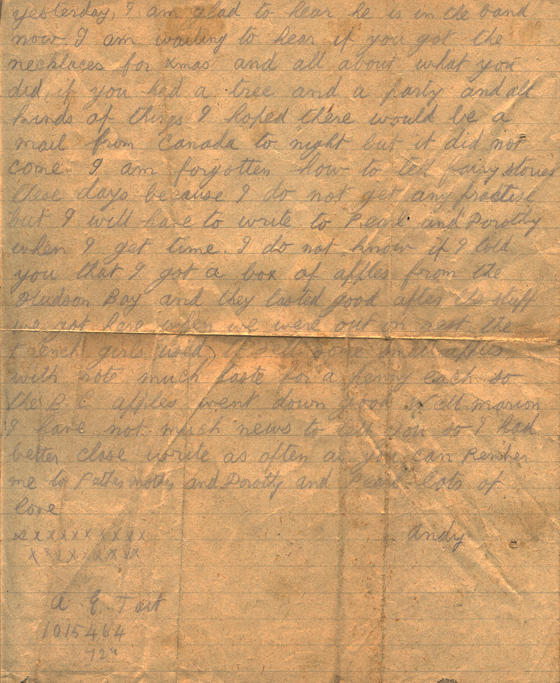 yesterday, I am glad to hear he is in the band
now I am waiting to hear if you got the
necklaces for xmas and all about what you
did, if you had a tree and a party and all
kinds of things I hoped there would be a
mail from Canada to night but it did not
come I am forgotten how to tell fairy stories
these days because I do not get any practise
but I will have to write to Pearl and Dorothy
when I get time. I do not know if I told
you that I got a box of apples from the
Hudson Bay and they tasted good after the stuff
we got here when we were out on rest the
French girls used to sell some small apples
with note much taste for a penny each so
the B.C. apples went down good
I have not much news to tell you so I had
better close write as often as you can
me to and Dorothy and Pearl lots of
love
Andy
xxxxxxxxxx
xxxxxxxxx
A. E. Tait
1015464
72"